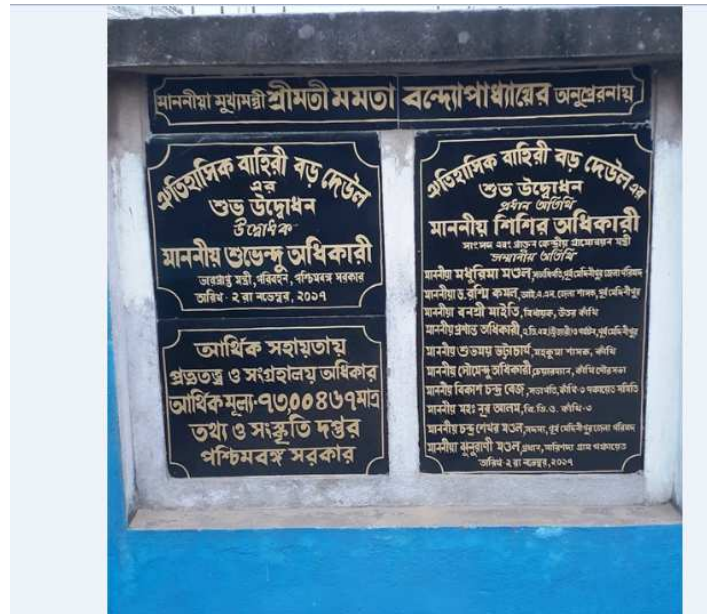 মাননীয়া মুখ্যমন্ত্রী শ্রীমতী মমতা বন্দ্যোপাধ্যায়ের অনুপ্রেরনায়
ঐতিহাসিক বাহিরী বড় দেউল
এর
শুভ উদ্বোধন
উদ্বোধক
মাননীয় শুভেন্দু অধিকারী
ভারপ্রাপ্ত মন্ত্রী, পরিবহন, পশ্চিমবঙ্গ সরকার
তারিখ - ২রা নভেম্বর, ২০১৭
আর্থিক সহায়তায়
প্রত্নতত্ত্ব ও সংগ্রহালয় অধিকার
আর্থিক মূল্য-৭৩,০০৪৬৭ মাত্র
তথ্য ও সংস্কৃতি দপ্তর
পশ্চিমবঙ্গ সরকার
ঐতিহাসিক বাহিরী বড় দেউল এর
শুভ উদ্বোধন
প্রধান অতিথি
মাননীয় শিশির অধিকারী
সাংসদ এবং প্রাক্তন কেন্দ্রীয় গ্রামোন্নয়ন মন্ত্রী
সম্মানীয় অতিথি
মাননীয়া মধুরিমা মণ্ডল, সভাধিপতি, পূর্ব মেদিনীপুর জেলা পরিষদ
মাননীয়া ড. রশ্মি কমল, আই.এ.এস. জেলা শাসক, পূর্ব মেদিনীপুর
মাননীয়া বনশ্রী মাইতি, বিধায়ক, উত্তর কাঁথি
মাননীয় প্রশান্ত অধিকারী, পূর্ব মেদিনীপুর
মাননীয় শুভময় ভট্টাচার্য, মহকুমা শাসক, কাঁথি
মাননীয় সৌমেন্দু অধিকারী, চেয়ারম্যান, কাঁথি পৌরসভা
মাননীয় বিকাশ চন্দ্র বেজ, সভাপতি, কাঁথি-৩ পঞ্চায়েত সমিতি
মাননীয় মহঃ নূর আলম, বি.ডি.ও. কাঁথি-৩
মাননীয় চন্দ্র শেখর মণ্ডল, সদস্য, পূর্ব মেদিনীপুর জেলা পরিষদ
মাননীয়া ঝুনুরাণী মণ্ডল, প্রধান, মারিশদা গ্রাম পঞ্চায়েত
তারিখ - ২রা নভেম্বর, ২০১৭